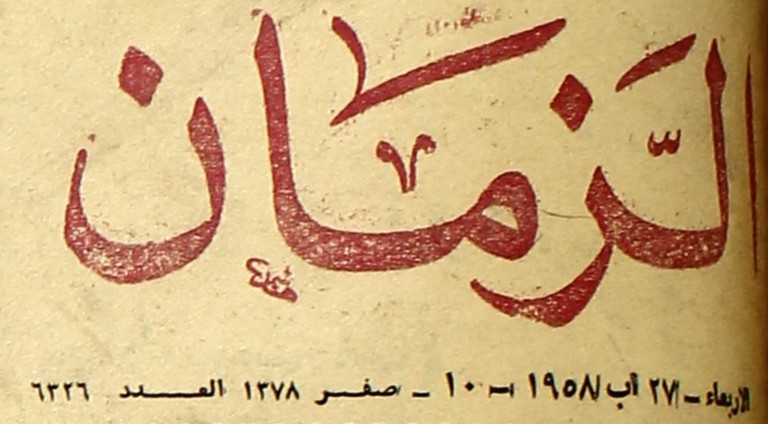 الزمان
الاربعاء - ٢٧ آب ١٩٥٨ - ١٠ - صفر ١٣٧٨ العدد ٦٣٢٦